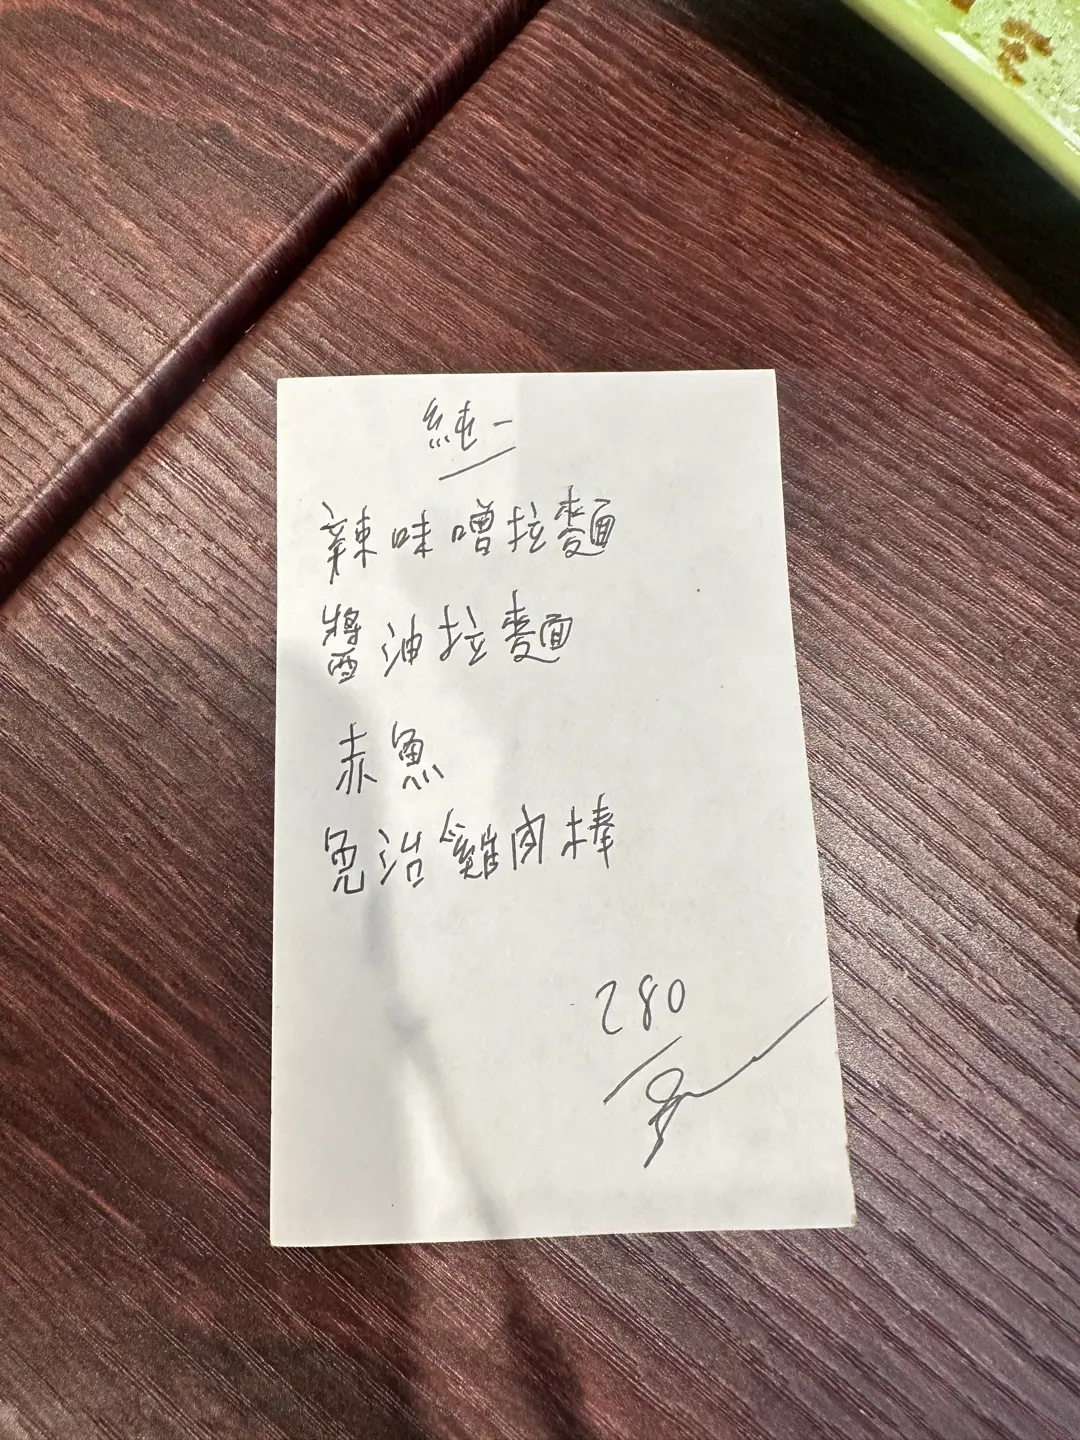 純一
辣味噌拉麵
醬油拉麵
赤魚
免治雞肉棒
280